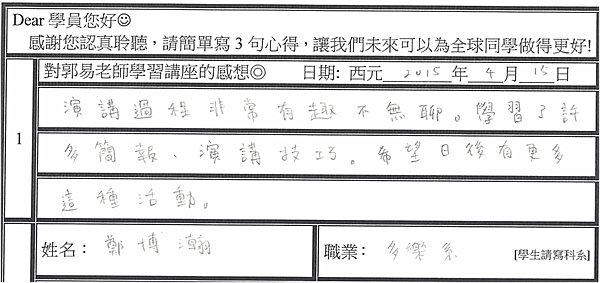 Dear 學員您好☺
感謝您認真聆聽，請簡單寫 3 句心得，讓我們未來可以為全球同學做得更好!
對郭易老師學習講座的感想◎ 日期: 西元 2015 年 4 月 15 日
1
演講過程非常有趣不無聊。學習了許
多簡報、演講技巧。希望日後有更多
這種活動。
姓名： 鄭博瀚 職業： 多樂系 [學生請寫科系]